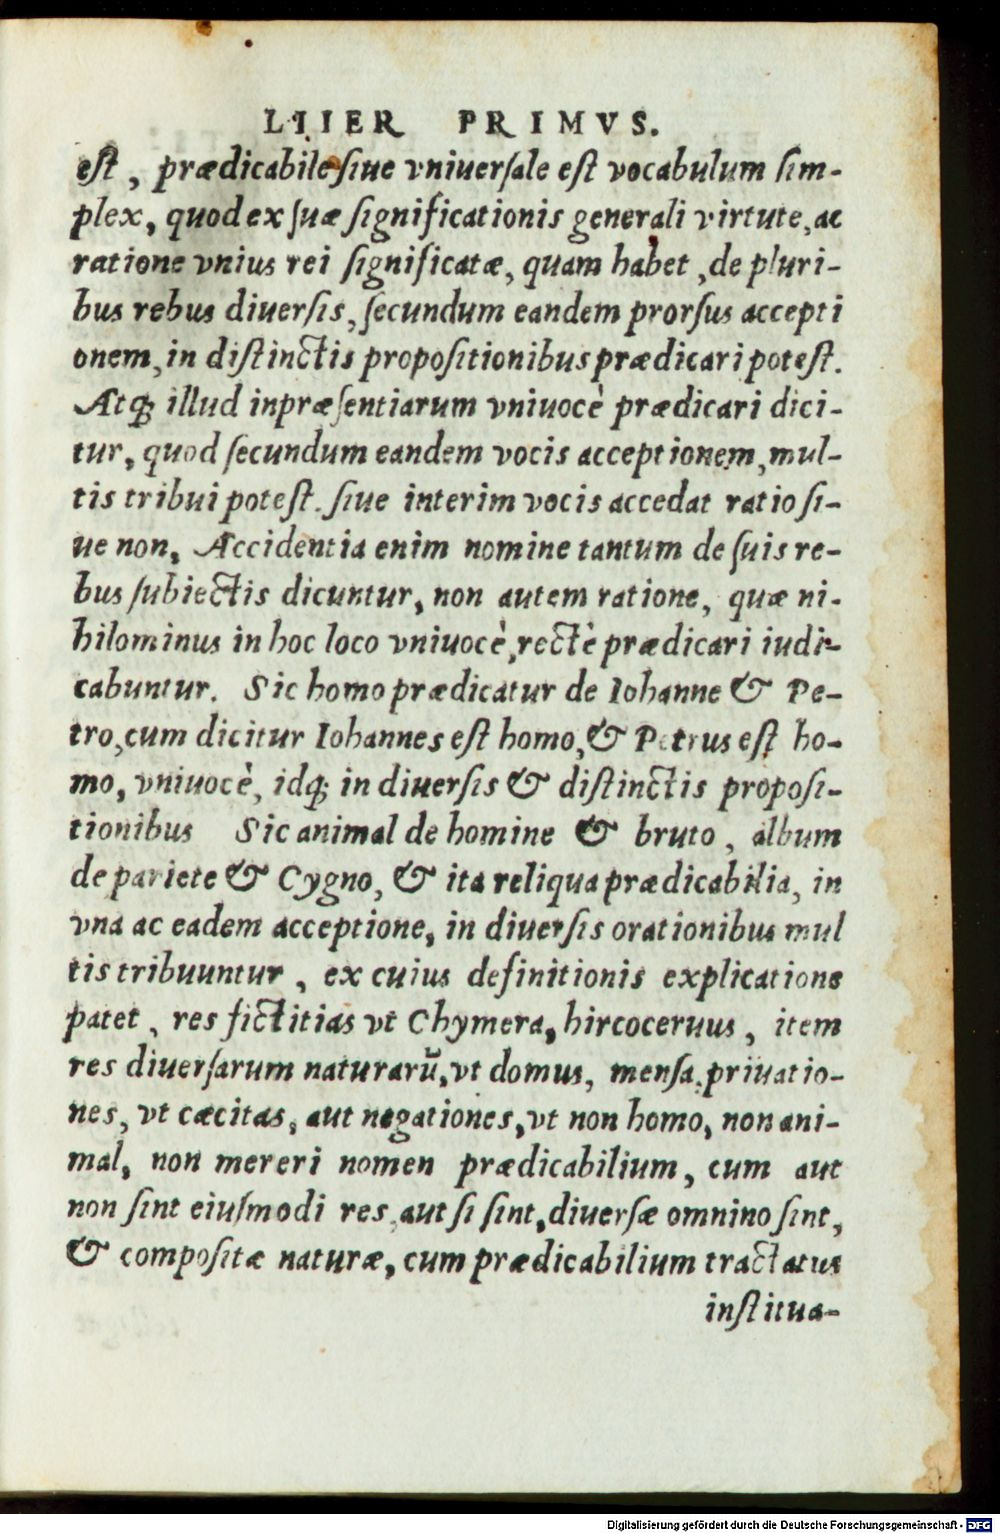 LIIER PRIMVS.
eſt, prædicabile ſiue vniuerſale eſt vocabulum ſim-
plex, quod ex ſuæ ſignificationis generali virtute, ac
ratione vnius rei ſignificatæ, quam habet, de pluri-
bus rebus diuerſis, ſecundum eandem prorſus accepti
onem, in diſtinctis propoſitionibus prædicari poteſt.
Atq; illud inpræſentiarum vniuocè prædicari dici-
tur, quod ſecundum eandem vocis acceptionem, mul-
tis tribui poteſt. ſiue interim vocis accedat ratio ſi-
ue non, Accidentia enim nomine tantum de ſuis re-
bus ſubiectis dicuntur, non autem ratione, quæ ni-
hilominus in hoc loco vniuocè, rectè prædicari iudi-
cabuntur. Sic homo prædicatur de Iohanne & Pe-
tro, cum dicitur Iohannes eſt homo, & Petrus eſt ho-
mo, vniuocè, idq; in diuerſis & diſtinctis propoſi-
tionibus Sic animal de homine & bruto, album
de pariete & Cygno, & ita reliqua prædicabilia, in
vna ac eadem acceptione, in diuerſis orationibus mul
tis tribuuntur, ex cuius definitionis explicatione
patet, res fictitias vt Chymera, hircoceruus, item
res diuerſarum naturarũ, vt domus, menſa, priuatio-
nes, vt cæcitas, aut negationes, vt non homo, non ani-
mal, non mereri nomen prædicabilium, cum aut
non ſint eiuſmodi res, aut ſi ſint, diuerſæ omnino ſint,
& compoſitæ naturæ, cum prædicabilium tractatus
inſtitua-
Digitalisierung gefördert durch die Deutsche Forschungsgemeinschaft - DFG